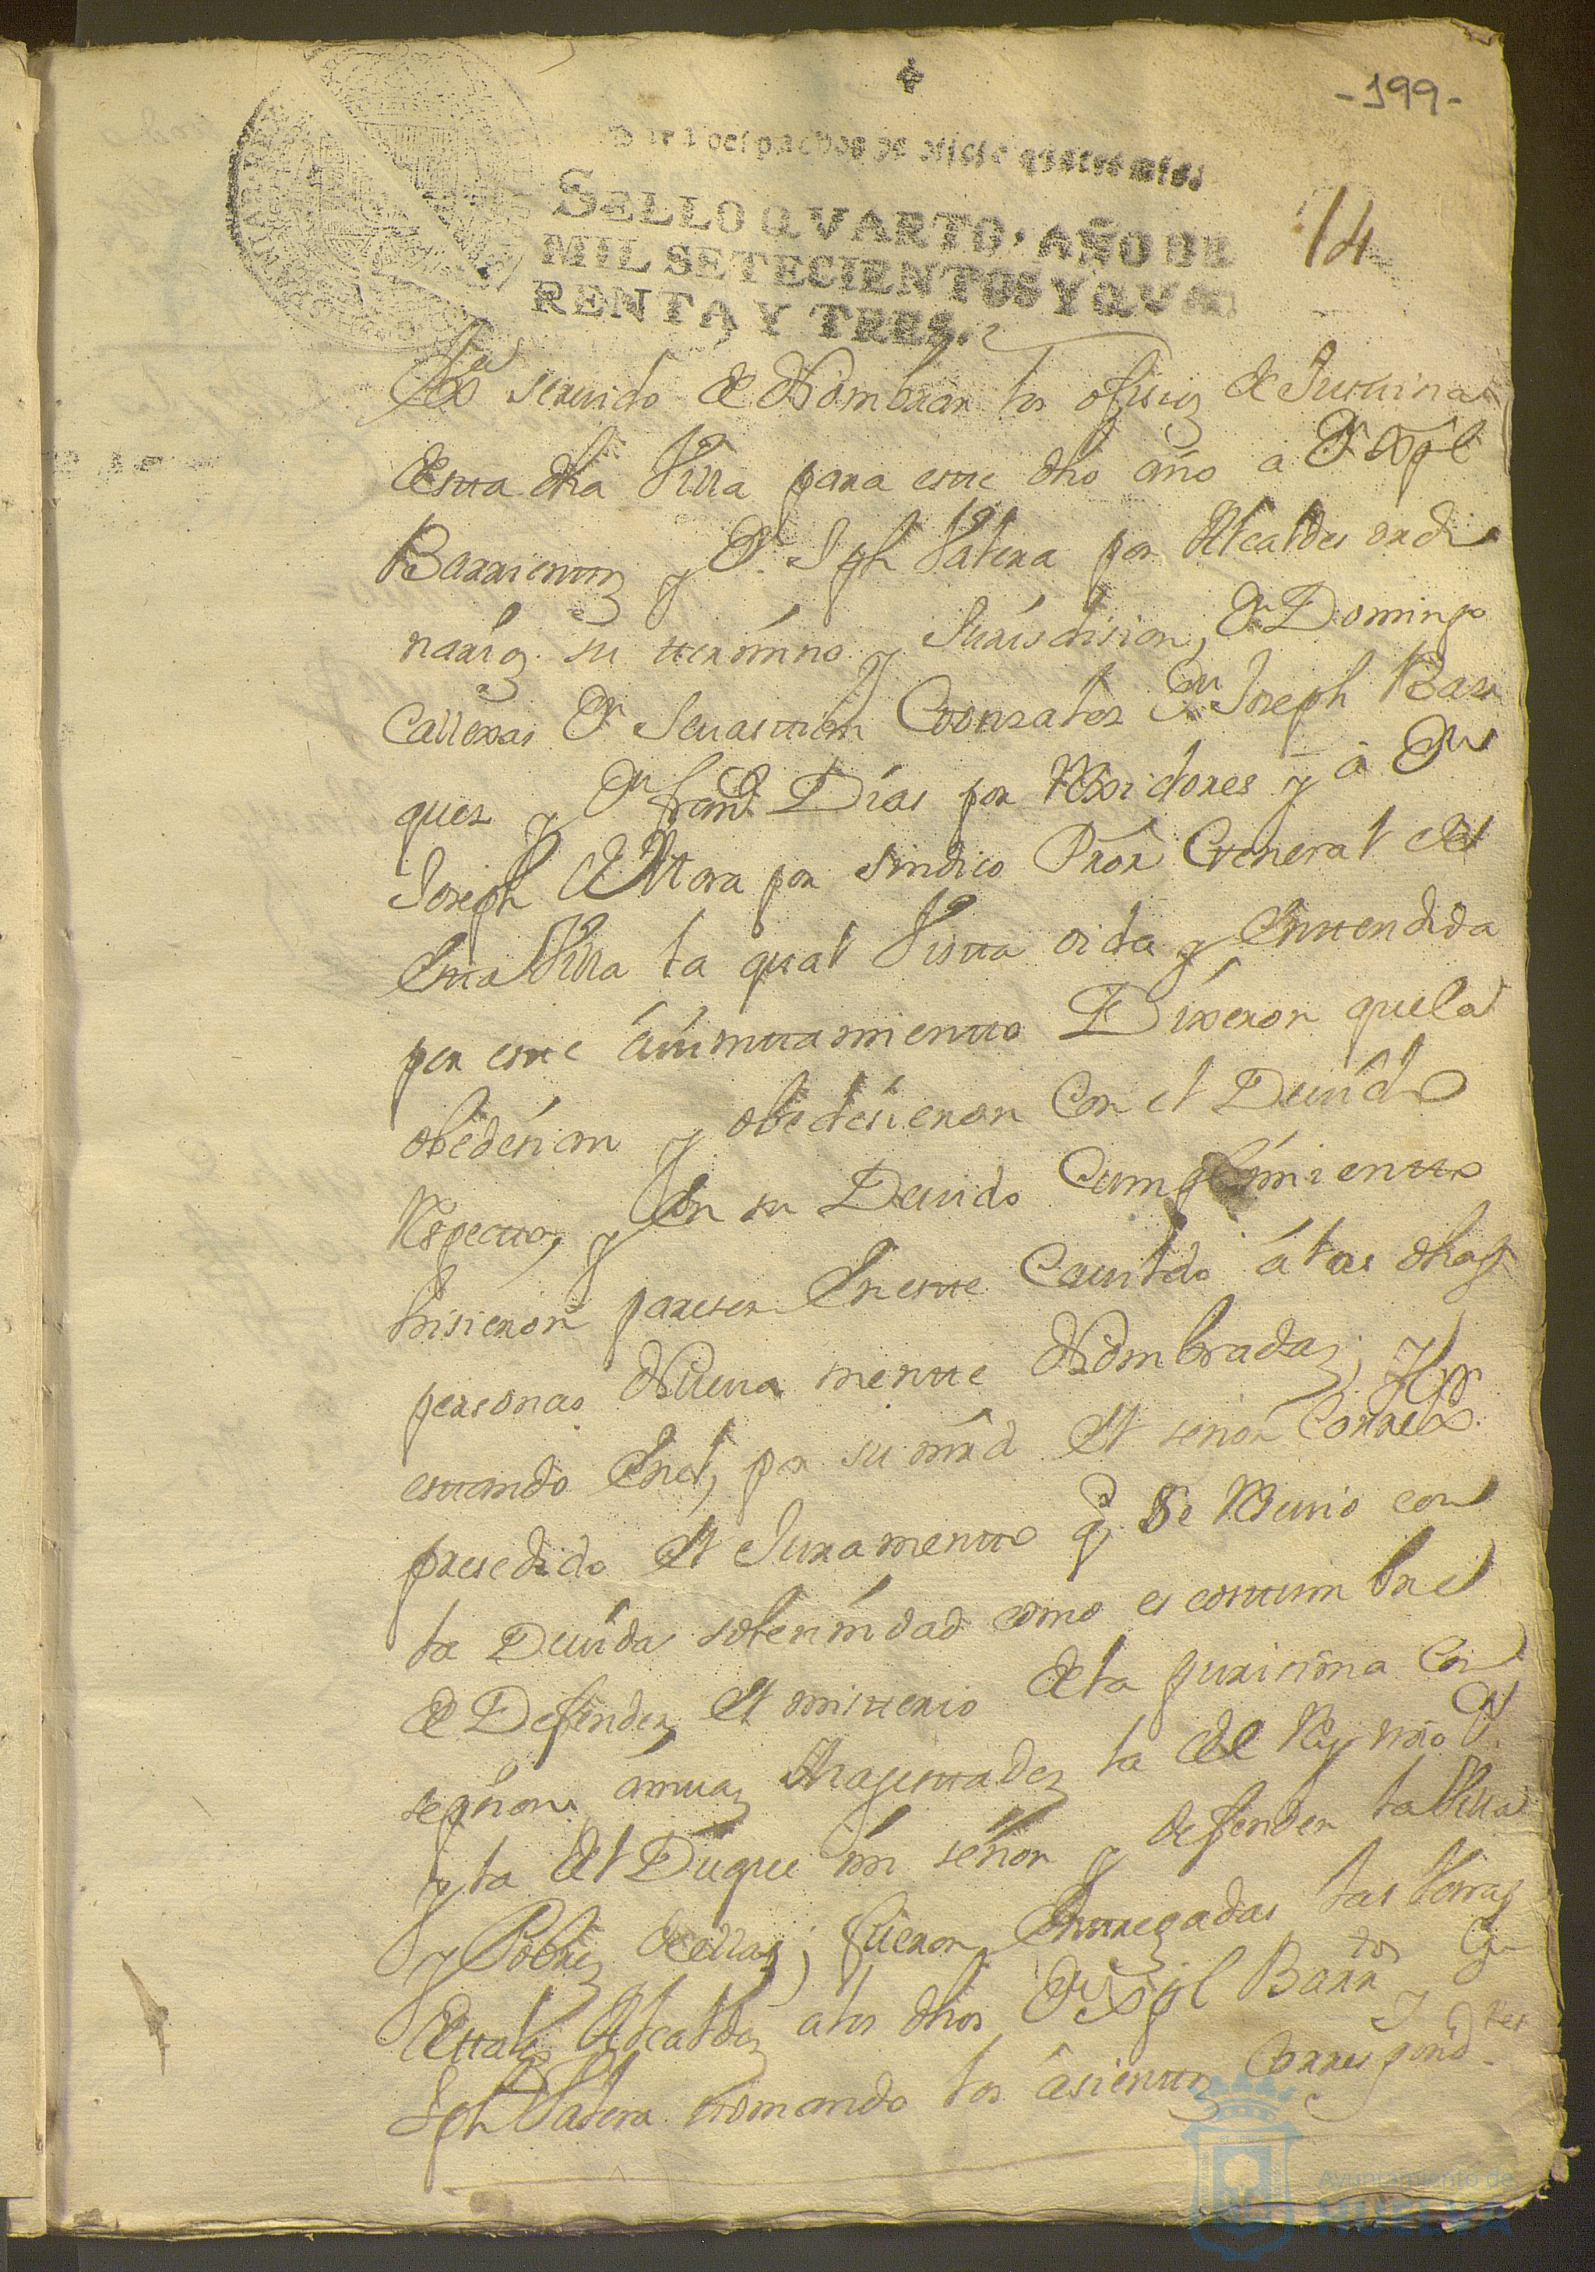 -199-
Para despachos de oficio quatro mrs.
SELLO QVARTO, AÑO DE
MIL SETECIENTOS Y QVA
RENTA Y TRES.
14
Ex.ª seruido de Nombrar los ofisios de Justisia
desta dha Villa para este dho año a Dn Xptl
Barrientos y Dn Jph Valera por Alcaldes ordi
narios su termino y Jurisdision, Dn Domingo
Callexas Dn Seuastian Gonzales Dn Joseph Bas
ques y Dn Franco Dias por Rexidores y a Dn
Joseph de Mora por Sindico Pror General de
esta Villa la qual Vista oida y Entendida
por este aiuntamiento Dixeron que la
obedesian y obedesieron Con el Deuido
Respecto, y En su Deuido Cumplimiento
hisieron pareser En este Cauildo á las dhas
personas Nueua mente Nombradas, Y
estando Enel, por su mrd El señor Correxor
presedido El Juramento q. Se Resiuio con
la Deuida solemnidad como es costumbre
de Defender El misterio de la purisima Con
sepsion, amuas Magestades la del Rey nro Sr.
y la del Duque mi señor y defender la Villa
y Pobres dellas, fueron Entregadas las Varas
de tales Alcaldes a los dhos Dn Xptl Barrtos y Dn
Jph Valera tomando los asientos Correspondtes
Ayuntamiento de
HUELVA